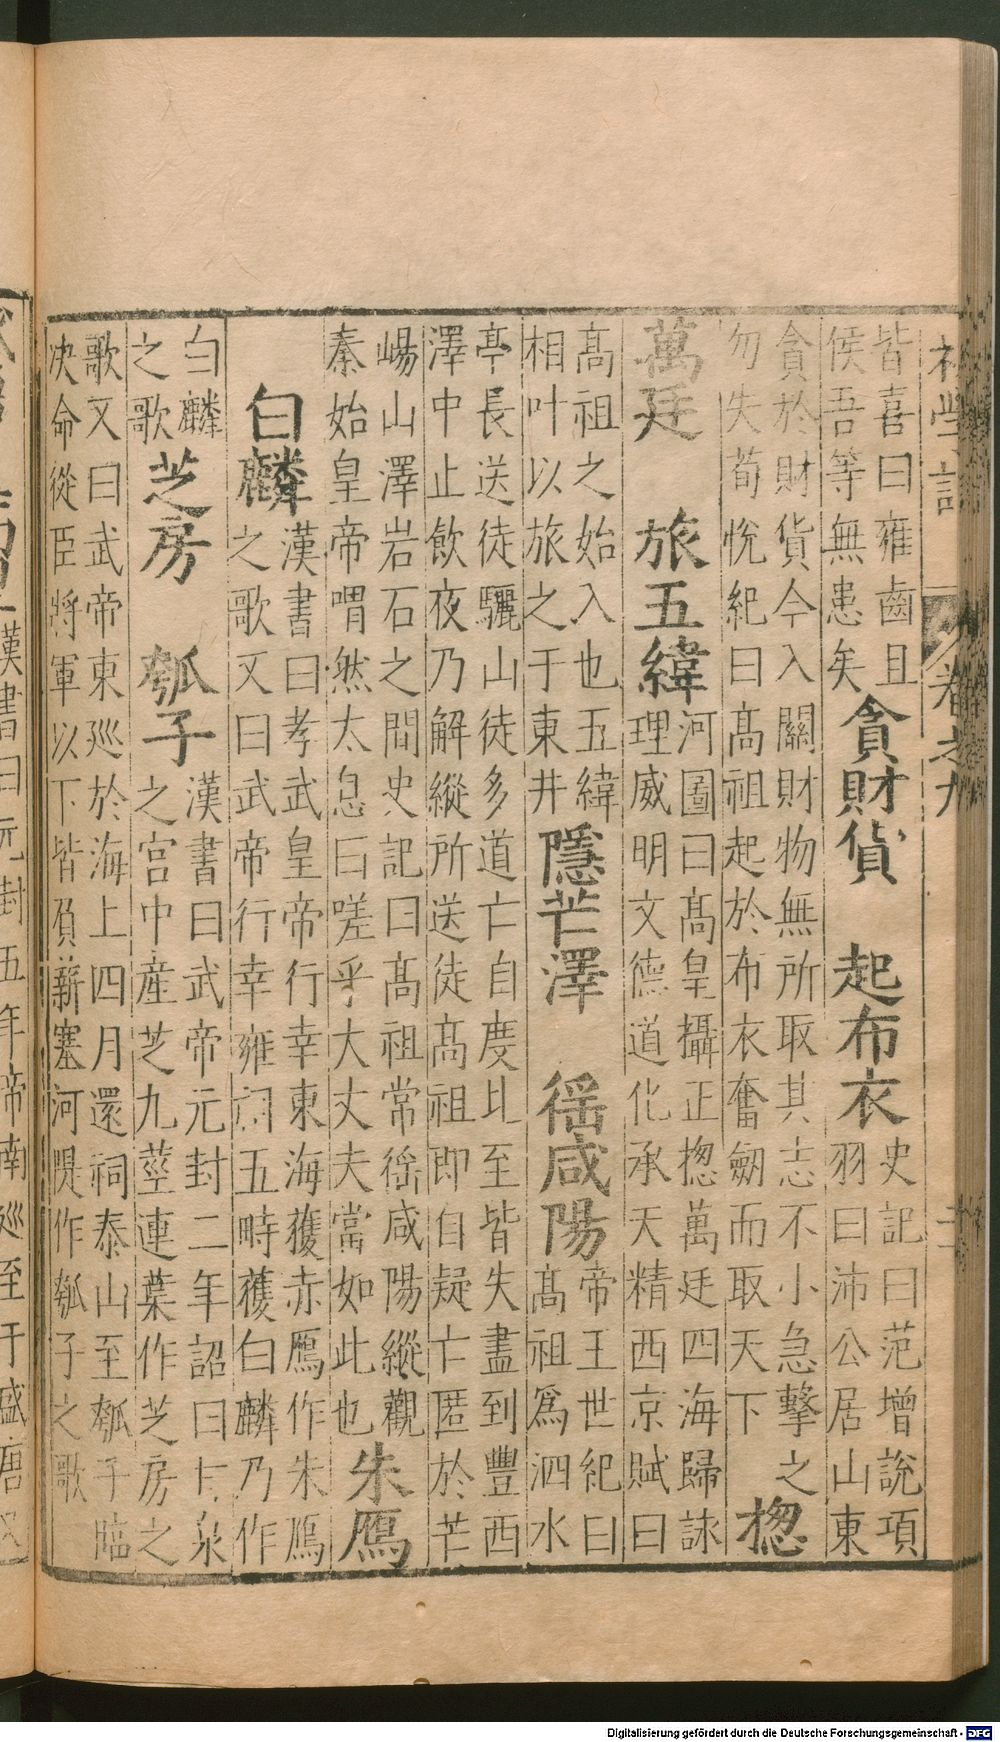 初學記 卷之九
皆喜曰雍齒且
侯吾等無患矣
貪財貨 起布衣
史記曰范增說項
羽曰沛公居山東
貪於財貨今入關財物無所取其志不小急擊之
勿失荀悅紀曰髙祖起於布衣奮劒而取天下
揔
萬廷 旅五緯
河圖曰髙皇攝正揔萬廷四海歸詠
理威明文德道化承天精西京賦曰
髙祖之始入也五緯
相叶以旅之于東井
隱芒澤 徭咸陽
帝王世紀曰
髙祖爲泗水
亭長送徒驪山徒多道亡自度比至皆失盡到豐西
澤中止飲夜乃解縱所送徒髙祖即自疑亡匿於芒
崵山澤岩石之間史記曰髙祖常徭咸陽縱觀
秦始皇帝喟然太息曰嗟乎大丈夫當如此也
朱鴈
白麟
漢書曰孝武皇帝行幸東海獲赤鴈作朱鴈
之歌又曰武帝行幸雍祠五畤獲白麟乃作
白麟
之歌
芝房 瓠子
漢書曰武帝元封二年詔曰甘泉
之宫中産芝九莖連葉作芝房之
歌又曰武帝東廵於海上四月還祠泰山至瓠子臨
决命從臣將軍以下皆負薪塞河隄作瓠子之歌
漢書曰元封五年帝南廵至于盛唐
Digitalisierung gefördert durch die Deutsche Forschungsgemeinschaft - DFG